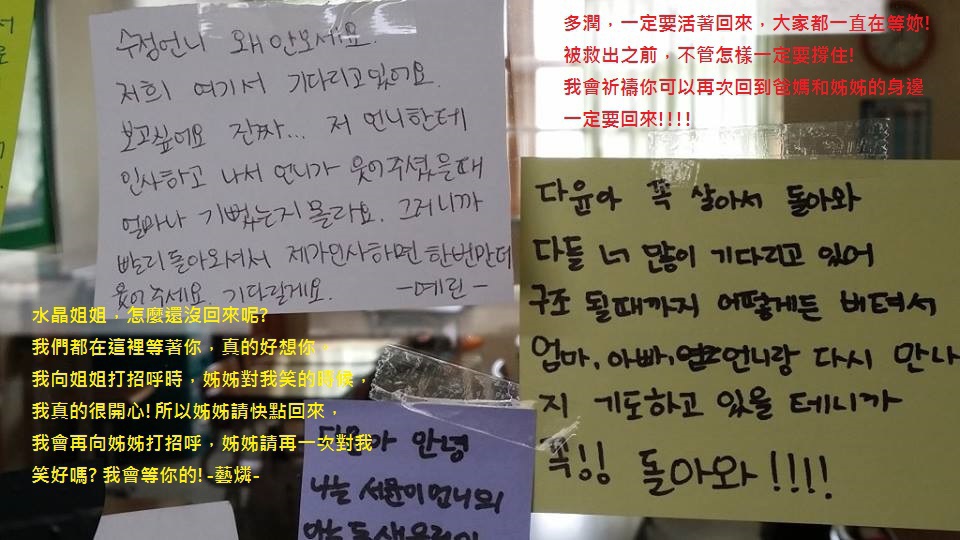 수정언니 왜 안오세요.
저희 여기서 기다리고있어요.
보고싶어요 진짜... 저 언니한테
인사하고 나서 언니가 웃어주셨을때
얼마나 기뻤는지 몰라요. 그러니까
빨리돌아오셔서 제가인사하면 한번만더
웃어주세요. 기다릴게요. -예린-
多潤，一定要活著回來，大家都一直在等妳!
被救出之前，不管怎樣一定要撐住!
我會祈禱你可以再次回到爸媽和姊姊的身邊
一定要回來!!!!
다윤아 꼭 살아서 돌아와
다들 너 많이 기다리고 있어
구조 될때까지 어떻게든 버텨서
엄마, 아빠, 언니랑 다시 만나
지 기도하고 있을 테니까
꼭!! 돌아와!!!!
水晶姐姐，怎麼還沒回來呢?
我們都在這裡等著你，真的好想你，
我向姐姐打招呼時，姊姊對我笑的時候，
我真的很開心! 所以姊姊請快點回來，
我會再向姊姊打招呼，姊姊請再一次對我
笑好嗎? 我會等你的! -藝燐-
다윤아 안녕
나는 서윤이언니의